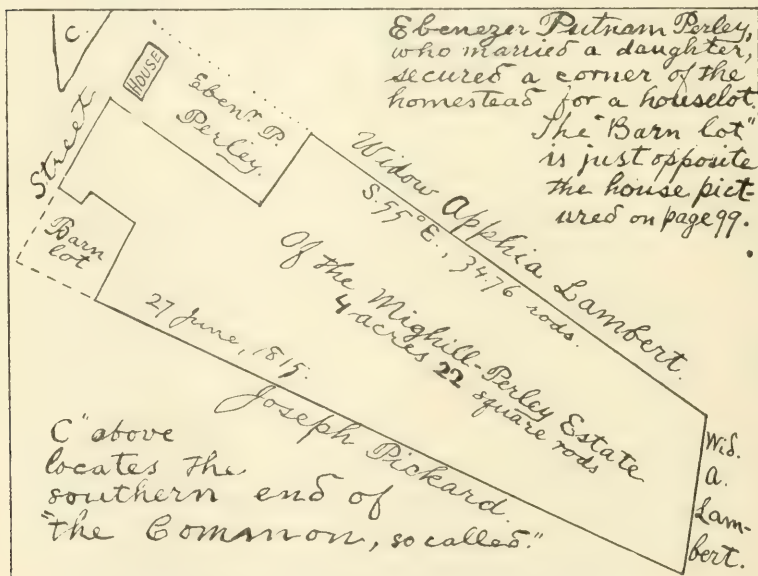 C.
Ebenezer Putnam Perley,
who married a daughter,
secured a corner of the
homestead for a houselot.
The "Barn lot"
is just opposite
the house pict-
ured on page 99.
HOUSE
Ebenr. P.
Perley.
Street
Barn
lot
Widow Apphia Lambert.
S. 55° E., 34.76 rods.
Of the Mighill-Perley Estate
4 acres 22 square rods
27 June, 1815.
Joseph Pickard.
Wid.
A.
Lam-
bert.
C" above
locates the
southern end of
"the Common, so called."